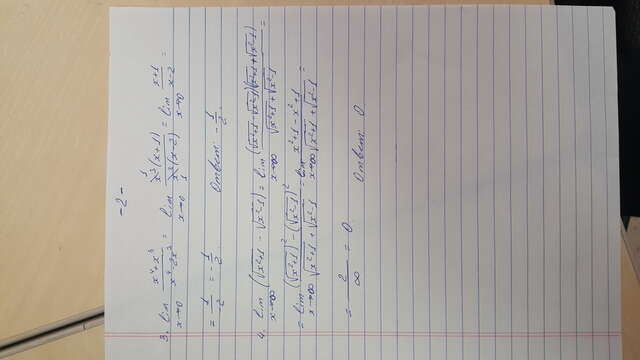 -2-
3. lim x→0 (x⁴+x³)/(x⁴-2x³) = lim x→0 (x³(x+1))/(x³(x-2)) = lim x→0 (x+1)/(x-2) =
= 1/-2 = -1/2. Ответ: -1/2.
4. lim x→∞ (√(x²+1) - √(x²-1)) = lim x→∞ ((√(x²+1) - √(x²-1))(√(x²+1) + √(x²-1)))/(√(x²+1) + √(x²-1)) =
= lim x→∞ ((√(x²+1))² - (√(x²-1))²)/(√(x²+1) + √(x²-1)) = lim x→∞ (x²+1-x²+1)/(√(x²+1) + √(x²-1)) =
= 2/∞ = 0 Ответ: 0